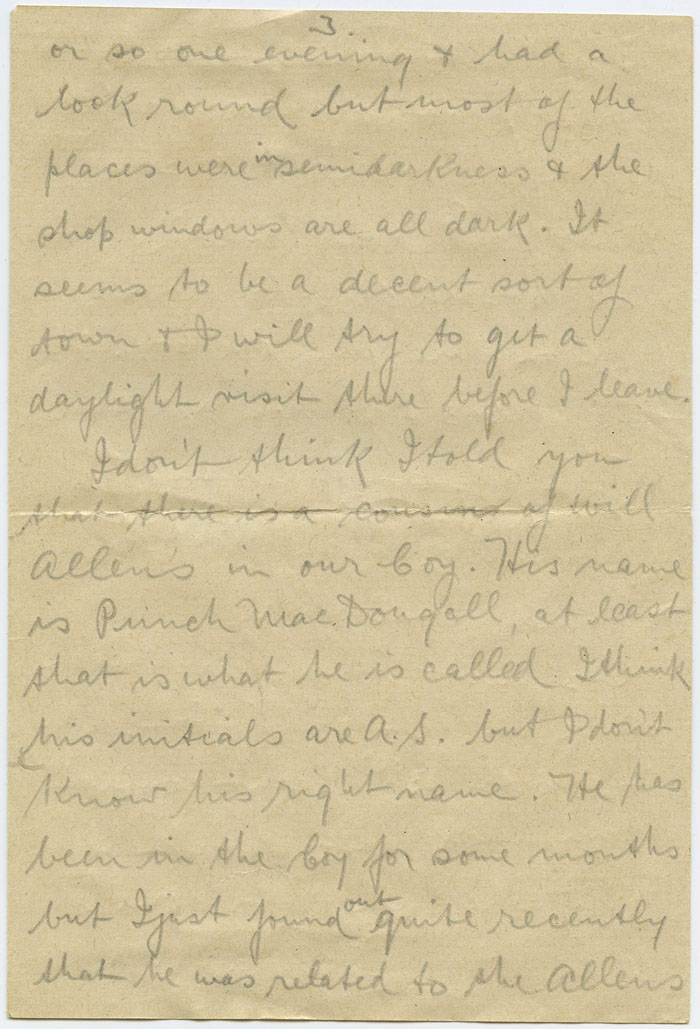 3
or so one evening & had a
look round but most of the
places were in semidarkness & the
shop windows are all dark. It
seems to be a decent sort of
town & I will try to get a
daylight visit there before I leave.
I don't think I told you
that there is a cousin of Will
Allen's in our Coy. His name
is Punch MacDougall, at least
that is what he is called I think
his initials are A.S. but I don't
know his right name. He has
been in the Coy for some months
but I just found out quite recently
that he was related to the Allens